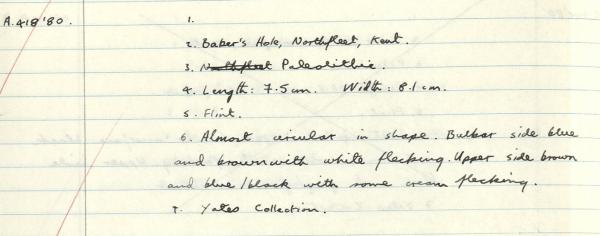 A.418'80. 1.
2. Baker's Hole, Northfleet, Kent.
3. Northfleet Paleolithic.
4. Length: 7.5cm. Width: 8.1cm.
5. Flint.
6. Almost circular in shape. Bulbar side blue
and brown with white flecking. Upper side brown
and blue/black with some cream flecking.
7. Yates Collection.